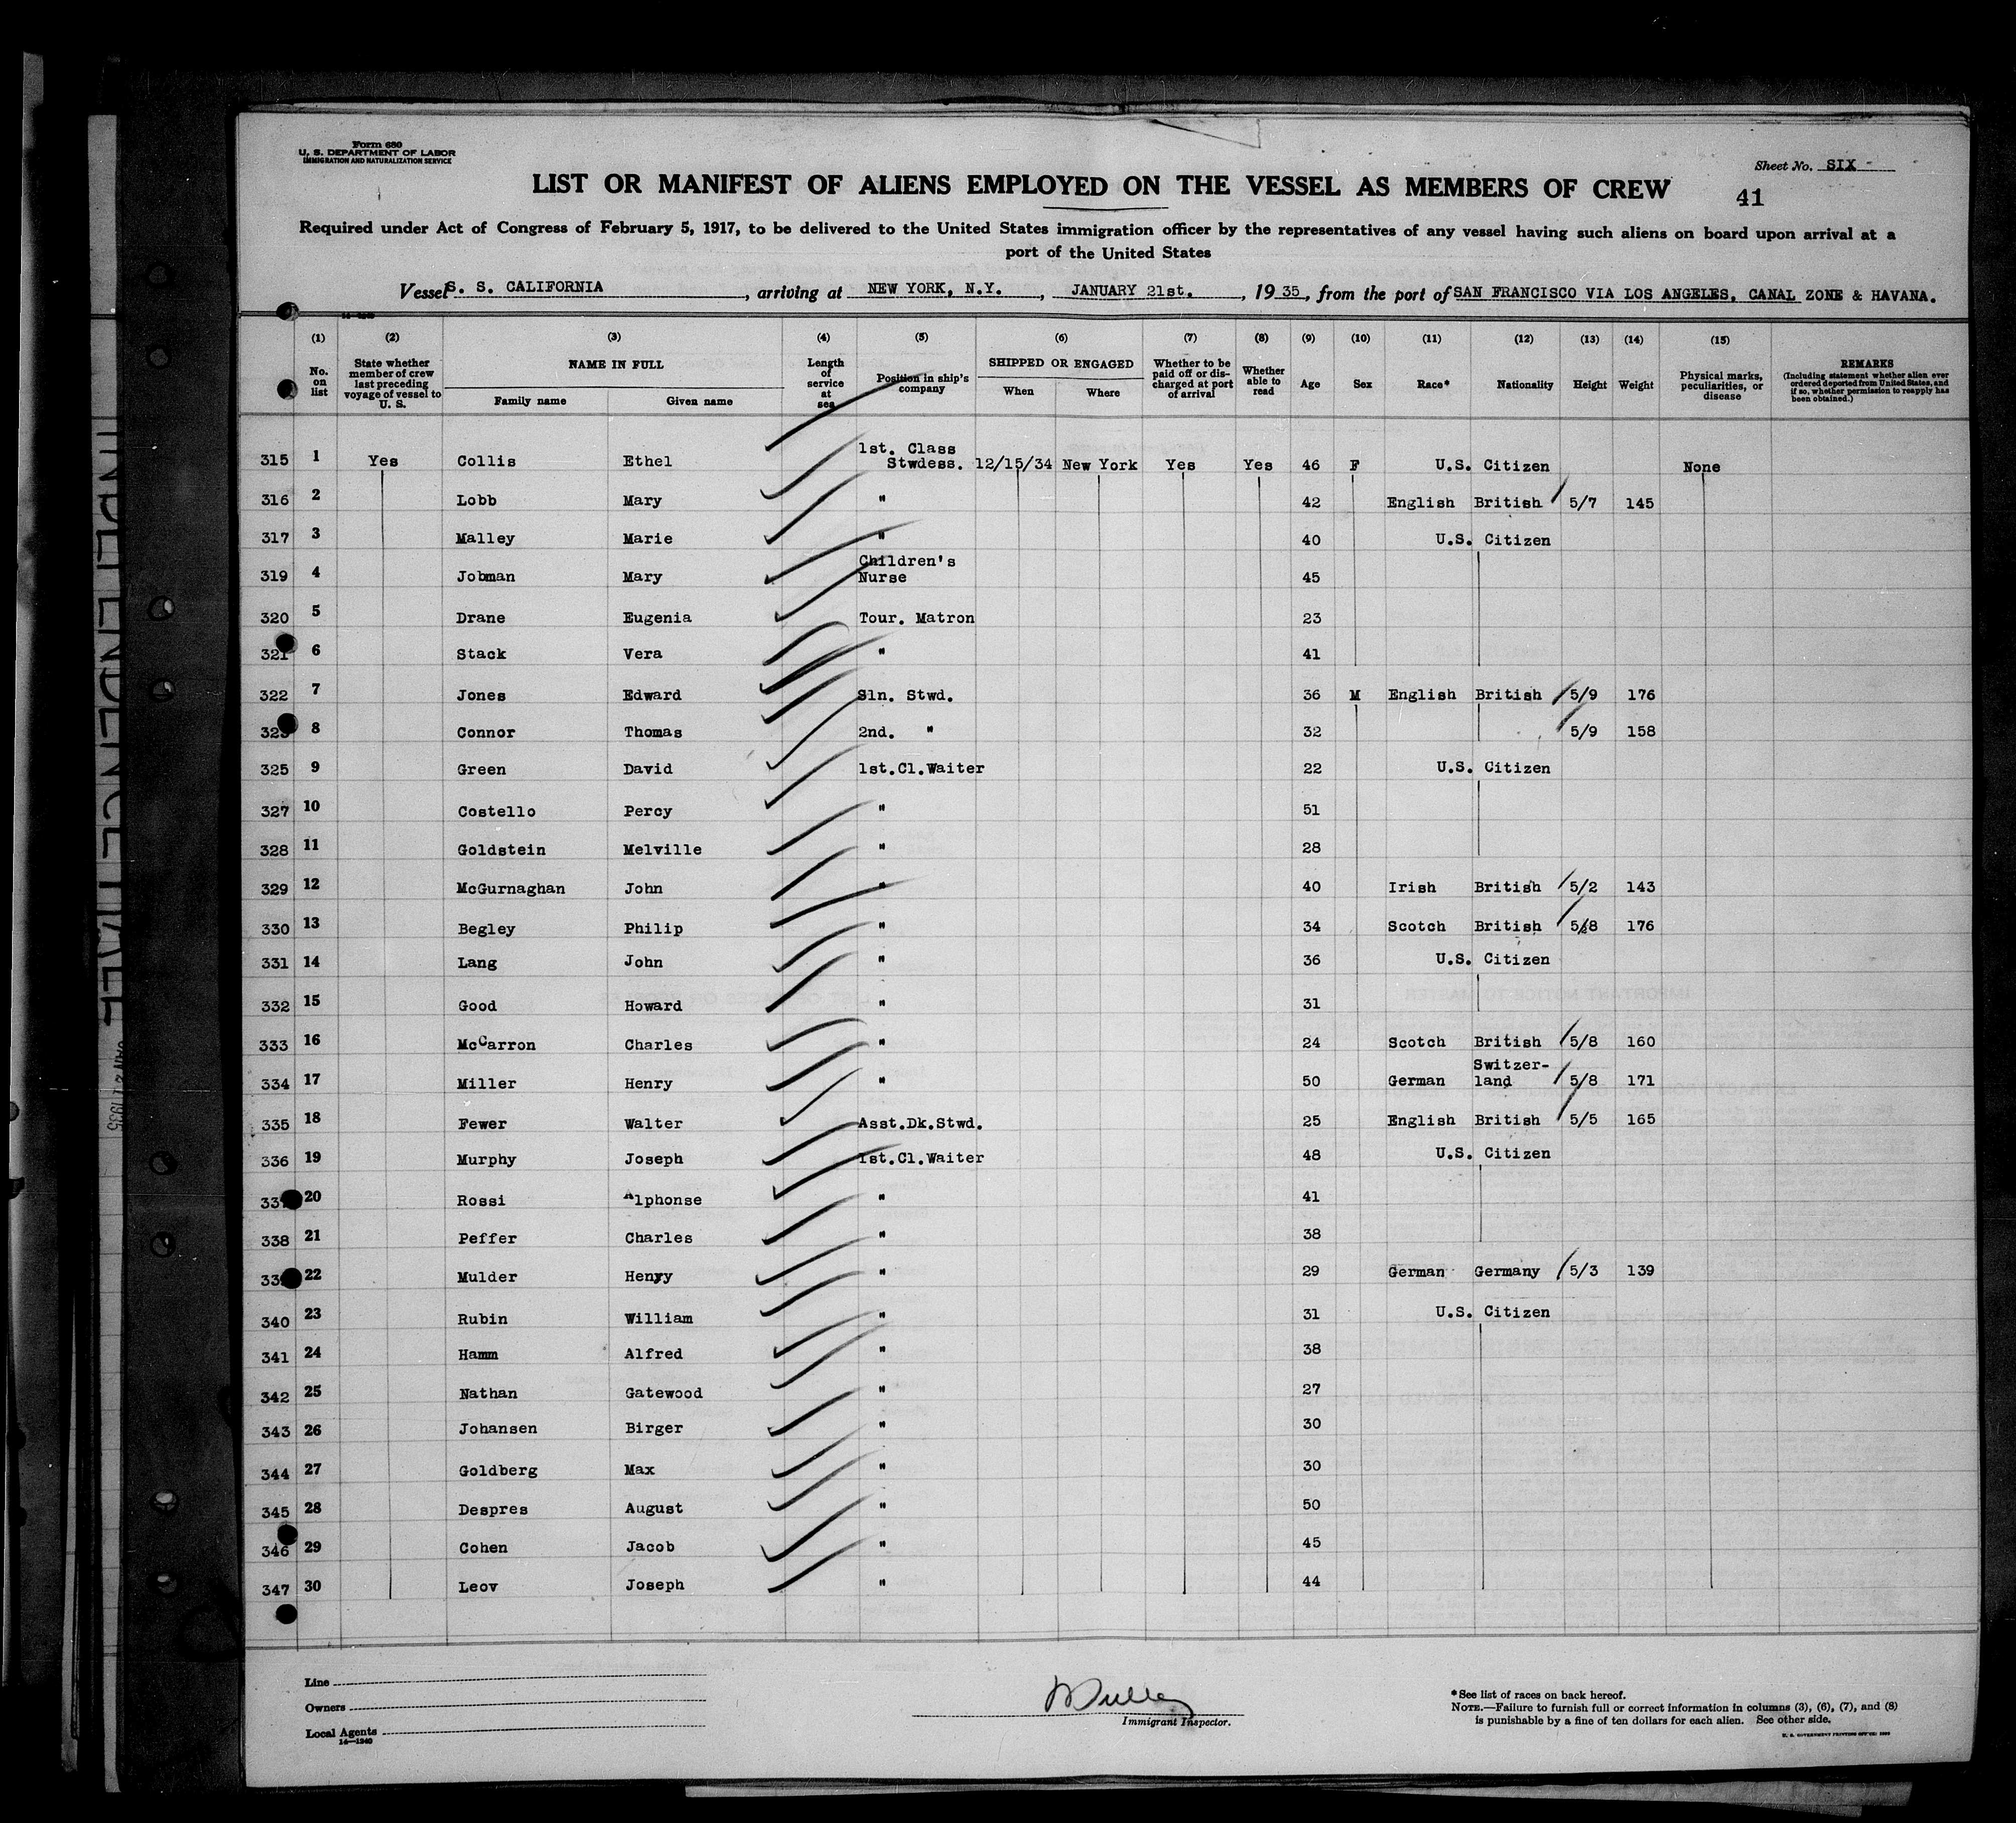 Form 680
U. S. DEPARTMENT OF LABOR
IMMIGRATION AND NATURALIZATION SERVICE
Sheet No. SIX
LIST OR MANIFEST OF ALIENS EMPLOYED ON THE VESSEL AS MEMBERS OF CREW
41
Required under Act of Congress of February 5, 1917, to be delivered to the United States immigration officer by the representatives of any vessel having such aliens on board upon arrival at a
port of the United States
Vessel S. S. CALIFORNIA, arriving at NEW YORK, N.Y., JANUARY 21st., 1935, from the port of SAN FRANCISCO VIA LOS ANGELES, CANAL ZONE & HAVANA.
(1) (2) (3) (4) (5) (6) (7) (8) (9) (10) (11) (12) (13) (14) (15)
No. on list
State whether member of crew last preceding voyage of vessel to U. S.
NAME IN FULL
Family name Given name
Length of service at sea
Position in ship's company
SHIPPED OR ENGAGED
When Where
Whether to be paid off or discharged at port of arrival
Whether able to read
Age Sex Race* Nationality Height Weight
Physical marks, peculiarities, or disease
REMARKS
(Including statement whether alien ever ordered deported from United States, and if so, whether permission to reapply has been obtained.)
315 1 Yes Collis Ethel 1st. Class Stwdess. 12/15/34 New York Yes Yes 46 F U.S. Citizen None
316 2 Lobb Mary " 42 English British 5/7 145
317 3 Malley Marie " 40 U.S. Citizen
319 4 Jobman Mary Children's Nurse 45
320 5 Drane Eugenia Tour. Matron 23
321 6 Stack Vera " 41
322 7 Jones Edward Sln. Stwd. 36 M English British 5/9 176
323 8 Connor Thomas 2nd. " 32 5/9 158
325 9 Green David 1st.Cl.Waiter 22 U.S. Citizen
327 10 Costello Percy " 51
328 11 Goldstein Melville " 28
329 12 McGurnaghan John " 40 Irish British 5/2 143
330 13 Begley Philip " 34 Scotch British 5/8 176
331 14 Lang John " 36 U.S. Citizen
332 15 Good Howard " 31
333 16 McCarron Charles " 24 Scotch British 5/8 160
334 17 Miller Henry " 50 German Switzer-land 5/8 171
335 18 Fewer Walter Asst.Dk.Stwd. 25 English British 5/5 165
336 19 Murphy Joseph 1st.Cl.Waiter 48 U.S. Citizen
337 20 Rossi Alphonse " 41
338 21 Peffer Charles " 38
339 22 Mulder Henry " 29 German Germany 5/3 139
340 23 Rubin William " 31 U.S. Citizen
341 24 Hamm Alfred " 38
342 25 Nathan Gatewood " 27
343 26 Johansen Birger " 30
344 27 Goldberg Max " 30
345 28 Despres August " 50
346 29 Cohen Jacob " 45
347 30 Leov Joseph " 44
Line
Owners
Local Agents
14—1240
Immigrant Inspector.
*See list of races on back hereof.
NOTE.—Failure to furnish full or correct information in columns (3), (6), (7), and (8)
is punishable by a fine of ten dollars for each alien. See other side.